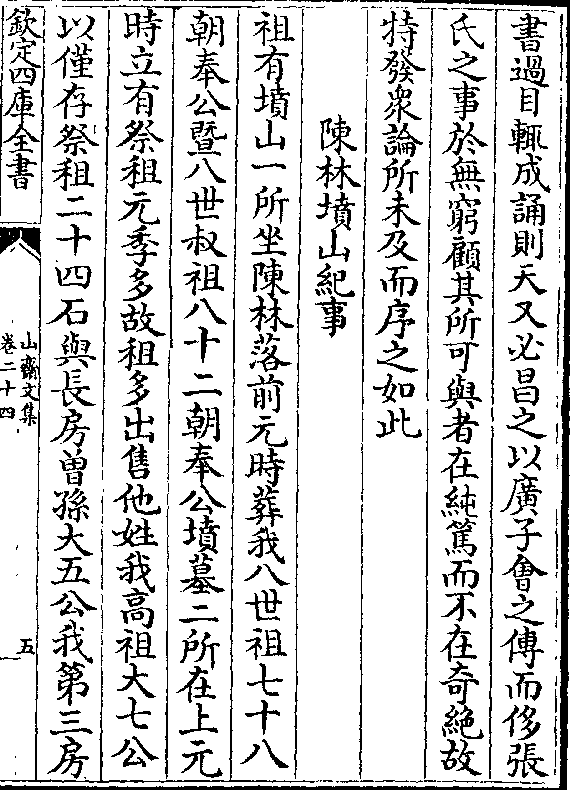 書過目輒成誦則天又必昌之以廣子會之傳而侈張
氏之事於無窮顧其所可與者在純篤而不在奇絶故
特發衆論所未及而序之如此
陳林墳山紀事
祖有墳山一所坐陳林落前元時葬我八世祖七十八
朝奉公暨八世叔祖八十二朝奉公墳墓二所在上元
時立有祭租元季多故租多出售他姓我高祖大七公
以僅存祭租二十四石與長房曽孫大五公我第三房
欽定四庫全書
山齋文集
卷二十四
五